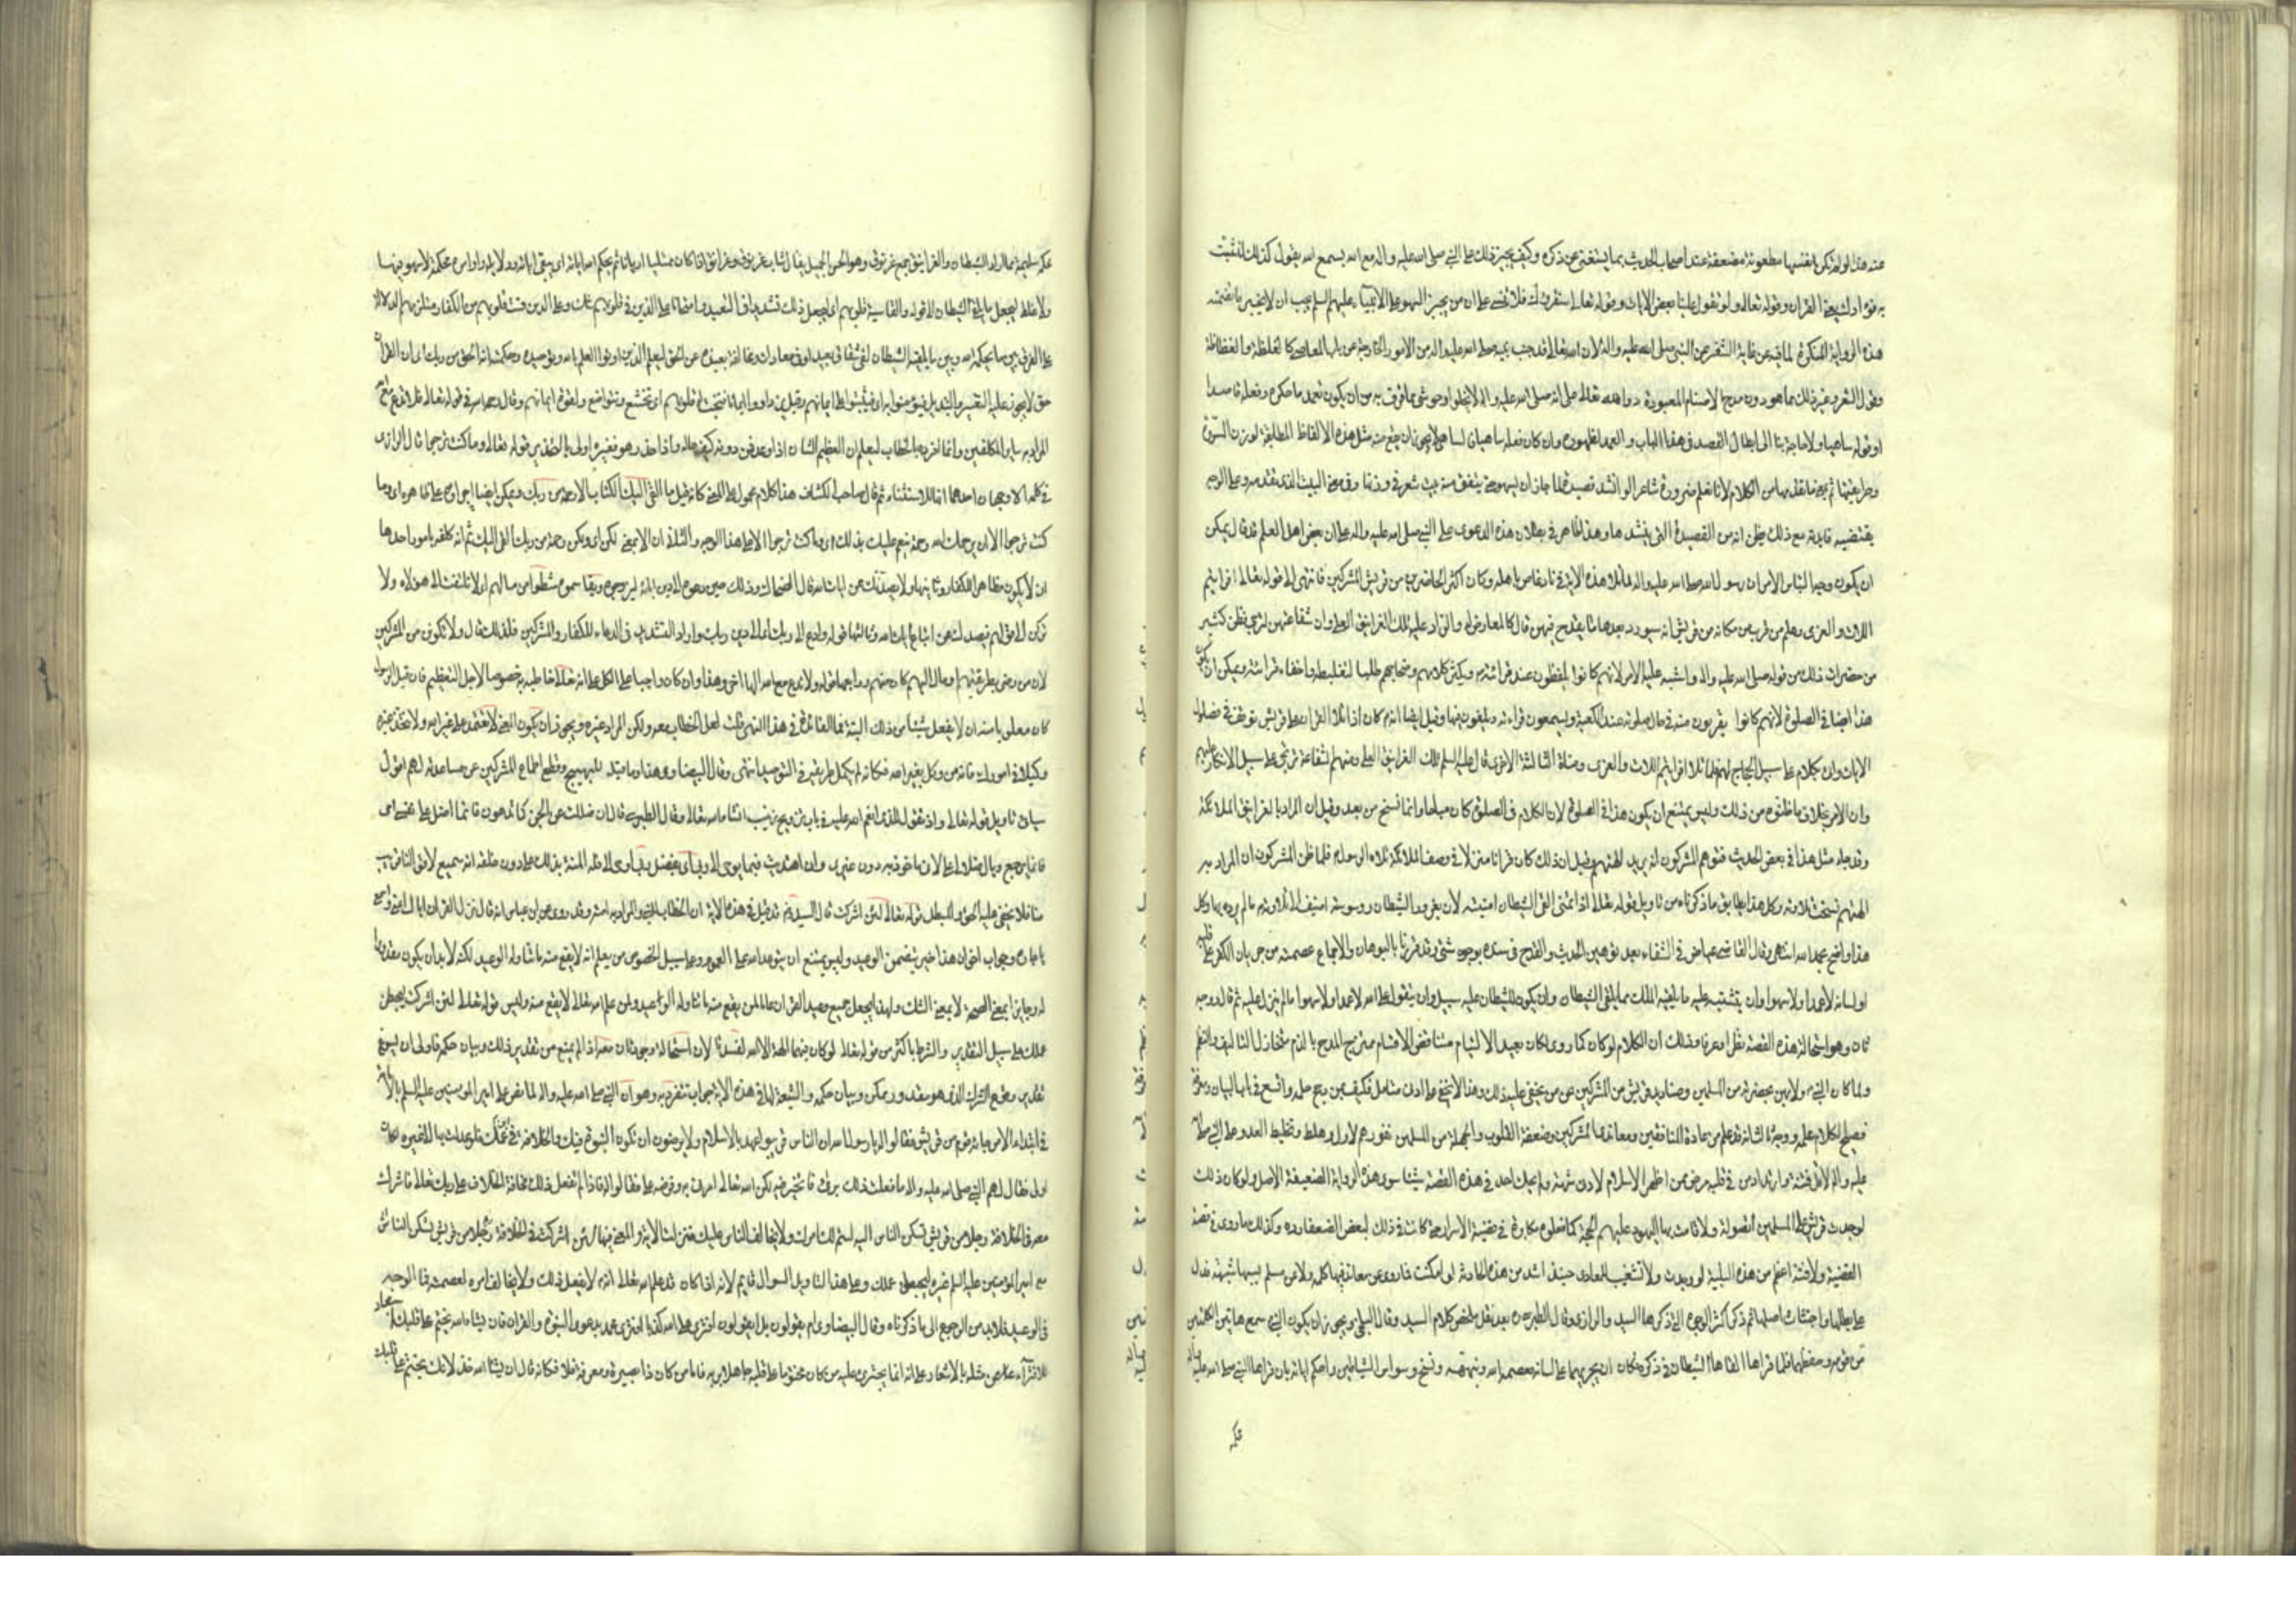 عنه هذا لو لم تكن في نفسها مطعونة مضعفة عند اصحاب الحديث بما يستغنى عن ذكره وكيف يجيز ذلك على النبي صلى الله عليه واله مع الله يسمع الله يقول كذلك لنثبت
به فؤادك يعني القران وقوله تعالى ولو تقول علينا بعض الاقاويل وقوله تعالى سنقرئك فلا تنسى على ان من يجيز السهو على الانبياء عليهم السلم يجب ان لا يجيز ما تضمنته
هذه الرواية المنكرة لما فيه من غاية التنفير عن النبي صلى الله عليه واله لان الله تعالى قد جنب نبيه صلى الله عليه واله من الامور الخارجة عن باب المعاصي كالغلظة والفظاظة
وقول الشعر وغير ذلك مما هو دون مدح الاصنام المعبودة دون الله تعالى على انه صلى الله عليه واله لا يخلو وحوشي مما قرف به من ان يكون تعمد ما حكوه وفعله قاصدا
او فعله ساهيا ولا حاجة بنا الى ابطال القصد في هذا الباب والعمد لظهوره وان كان فعله ساهيا فالساهي لا يجوز ان يقع منه مثل هذه الالفاظ المطابقة لوزن السورة
وطريقتها ثم بمعنى ما تقدمها من الكلام لانا نعلم ضرورة ان شاعرا لو انشد قصيدة لما جاز ان يسهو حتى يتفق منه بيت شعر في وزنها وفي معنى البيت الذي تقدمه وعلى الوجه
يقتضيه فائدته مع ذلك يظن انه من القصيدة التي ينشدها وهذا ظاهر في بطلان هذه الدعوى على النبي صلى الله عليه واله على ان بعض اهل العلم قد قال يمكن
ان يكون وجه التباس الامر ان رسول الله صلى الله عليه واله لما تلا هذه الاية في ناد غاص باهله وكان اكثر الحاضرين من قريش المشركين فانتهى الى قوله تعالى افرايتم
اللات والعزى وعلم من قرب من مكانه من قريش انه سيورد بعدها ما يقدح فيهن قال كالمعارض له والراد عليه تلك الغرانيق العلى وان شفاعتهن لترتجى فظن كثير
من حضر ان ذلك من قوله صلى الله عليه واله واشتبه عليه الامر لانهم كانوا يلفظون عند قرائته ويكثر كلامهم وضجاجهم طلبا لتغليطه واخفاء قرائته ويمكن ان يكون
هذا ايضا في الصلوة لانهم كانوا يقربون منه في حال صلوته عند الكعبة ويسمعون قراءته ويلغون فيها وقيل ايضا انه كان اذا تلا القران على قريش توقف في فصول
الايات واتى بكلام على سبيل الحجاج لهم فلما تلا افرايتم اللات والعزى ومناة الثالثة الاخرى قال عليه السلم تلك الغرانيق العلى ومنها شفاعة ترتجى على سبيل الانكار عليهم
وان الامر بخلاف ما ظنوه من ذلك وليس يمتنع ان يكون هذا في الصلوة لان الكلام في الصلوة كان مباحا وانما نسخ من بعد وقيل ان المراد بالغرانيق الملائكة
وقد جاء مثل هذا في بعض الحديث فتوهم المشركون انه يريد الهتهم وقيل ان ذلك كان قرانا منزلا في وصف الملائكة تلاه الرسول فلما ظن المشركون ان المراد به
الهتهم نسخت تلاوته وكل هذا يطابق ما ذكرناه من تاويل قوله تعالى اذا تمنى القى الشيطان في امنيته لان بغرور الشيطان ووسوسته اضيف الى تلاوته ما لم يرده بها وكل
هذا واضح بحمد الله انتهى وقال القاضي عياض في الشفاء بعد توهين الحديث والقدح في سنده بوجوه شتى وقد قررنا بالبرهان والاجماع عصمته من جريان الكفر على قلبه
او لسانه لا عمدا ولا سهوا وان يتشبه عليه ما يلقيه الملك مما يلقي الشيطان وان يكون للشيطان عليه سبيل وان يتقول على الله لا عمدا ولا سهوا ما لم ينزل عليه ثم قال ووجه
ثان وهو استحالة هذه القصة نظرا وعرفا وذلك ان الكلام لو كان كما روي لكان بعيد الالتيام متناقض الاقسام ممتزج المدح بالذم متخاذل التاليف والنظم
ولما كان النبي ولا من بحضرته من المسلمين وصناديد قريش من المشركين ممن يخفى عليه ذلك وهذا لا يخفى على ادنى متامل فكيف بمن رجح حلمه واتسع في باب البيان ومعرفة
فصيح الكلام علمه ووجه ثالث انه قد علم من عادة المنافقين ومعاندي المشركين وضعفة القلوب والجهلة من المسلمين نفورهم لاول وهلة وتخليط العدو على النبي صلى الله
عليه واله لاقل فتنة وارتداد من في قلبه مرض ممن اظهر الاسلام لادنى شبهة ولم يحك احد في هذه القصة شيئا سوى هذه الرواية الضعيفة الاصل ولو كان ذلك
لوجدت قريش على المسلمين الصولة ولاقامت بها اليهود عليهم الحجة كما فعلوه مكابرة في قضية الاسراء حتى كانت في ذلك لبعض الضعفاء ردة وكذلك ما روي في قصة
القضية ولا فتنة اعظم من هذه البلية لو وجدت ولا تشغيب للمعادي حينئذ اشد من هذه الحادثة لو امكنت فما روي عن معاند فيها كلمة ولا عن مسلم بسببها شبهة فدل
على بطلها واجتثاث اصلها ثم ذكر اكثر الوجوه التي ذكرها السيد والرازي وقال الطبرسي ره بعد نقل ملخص كلام السيد وقال البلخي ويجوز ان يكون النبي سمع هاتين الكلمتين
من قومه وحفظهما فلما قراها القاها الشيطان في ذكره فكان ان يجريهما على لسانه فعصمه الله ونبهه ونسخ وسواس الشيطان واحكم اياته بان قراها النبي صلى الله عليه واله
محكمة
محكمة سليمة مما اراد الشيطان والغرانيق جمع غرنوق وهو الحسن الجميل يقال شاب غرنوق وغرانق اذا كان ممتليا ريانا ثم يحكم الله اياته اي يبقي اياته ودلائله واوامره محكمة لا سهو فيها
ولا غلط ليجعل ما يلقي الشيطان الى قوله والقاسية قلوبهم اي ليجعل ذلك تشديدا في التعبد وامتحانا على الذين في قلوبهم شك وعلى الذين قست قلوبهم من الكفار فتلزمهم الدلالة
على الفرق بين ما يحكمه الله وبين ما يلقيه الشيطان لفي شقاق بعيد اي في معاداة ومخالفة بعيدة عن الحق ليعلم الذين اوتوا العلم بالله وتوحيده وحكمته انه الحق من ربك اي ان القران
حق لا يجوز عليه التغيير والتبديل فيؤمنوا به اي فيثبتوا على ايمانهم وقيل يزدادوا ايمانا فتخبت له قلوبهم اي تخشع وتتواضع لقوة ايمانهم وقال رحمه الله في قوله تعالى فلا تدع مع الله
المراد به ساير المكلفين وانما افرده بالخطاب ليعلم ان العظيم الشان اذا اوعد فمن دونه كيف حاله واذا حذر هو فغيره اولى بالحذر قوله تعالى وما كنت ترجوا قال الرازي
في كلمة الا وجهان احدهما انها للاستثناء ثم قال صاحب الكشاف هذا كلام محمول على المعنى كانه قيل ما القي اليك الكتاب الا رحمة من ربك ويمكن ايضا اجراؤه على ظاهره اي وما
كنت ترجوا الا ان يرحمك الله رحمة فينعم عليك بذلك اي ما كنت ترجوا الا على هذا الوجه والثاني ان الا بمعنى لكن اي ولكن رحمة من ربك القي اليك ثم انه كلفه بامور احدها
ان لا يكون مظاهرا للكفار وثانيها ولا يصدنك عن ايات الله قال الضحاك وذلك حين دعوه الى دين ابائه ليزوجوه ويقاسموه شطرا من مالهم اي لا تلتفت الى هؤلاء ولا
تركن الى قولهم فيصدك عن اتباع ايات الله وثالثها قوله وادع الى ربك اي الى دين ربك واراد التشديد في الدعاء للكفار والمشركين فلذلك قال ولا تكونن من المشركين
لان من رضي بطريقتهم او مال اليهم كان منهم ورابعها قوله ولا تدع مع الله الها اخر وهذا وان كان واجبا على الكل الا انه تعالى خاطبه به خصوصا لاجل التعظيم فان قيل الرسول
كان معلوما منه ان لا يفعل شيئا من ذلك البتة فما الفائدة في هذا النهي قلت لعل الخطاب معه ولكن المراد غيره ويجوز ان يكون المعنى لا تعتمد على غير الله ولا تتخذ غيره
وكيلا في امورك فانه من وكل بغير الله فكانه لم يكمل طريقه في التوحيد انتهى وقال البيضاوي هذا وما قبله للتهييج وقطع اطماع المشركين عن مساعدته لهم اقول
سياتي تاويل قوله تعالى واذ تقول للذي انعم الله عليه في باب تزويج زينب انشاء الله تعالى وقال الطبرسي قل ان ضللت عن الحق كما تدعون فانما اضل على نفسي اي
فانما يرجع وبال ضلالي علي لاني ماخوذ به دون غيري وان اهتديت فبما يوحي الي ربي اي بفضل ربي اوحى الي فله المنة بذلك علي دون خلقه انه سميع لاقوالنا قريب
منا فلا يخفى عليه المحق والمبطل قوله تعالى لئن اشركت قال السيد قد قيل في هذه الاية ان الخطاب للنبي والمراد به امته وقد روي عن ابن عباس انه قال نزل القران باياك اعني واسمعي
يا جارة وجواب اخر ان هذا خبر يتضمن الوعيد وليس يمتنع ان يتوعد الله على العموم وعلى سبيل الخصوص من يعلم انه لا يقع منه ما تناوله الوعيد لكنه لا بد ان يكون مقدورا
له وجايزا بمعنى الصحة لا بمعنى الشك ولهذا يجعل جميع وعيد القران عاما لمن يقع منه ما تناوله الوعيد ولمن علم الله تعالى انه لا يقع منه وليس قوله تعالى لئن اشركت ليحبطن
عملك على سبيل التقدير والشرط باكثر من قوله تعالى لو كان فيهما الهة الا الله لفسدتا لان استحالة وجود ثان معه اذا لم يمنع من تقدير ذلك وبيان حكمه فاولى ان يسوغ
تقدير وقوع الشرك الذي هو مقدور ممكن وبيان حكمه والشيعة لها في هذه الاية جواب تنفرد به وهو ان النبي صلى الله عليه واله لما نص على امير المؤمنين عليه السلم بالامامة
في ابتداء الامر جاءه قوم من قريش فقالوا له يا رسول الله ان الناس قريبوا عهد بالاسلام ولا يرضون ان تكون النبوة فيك والخلافة في ابن عمك فلو عدلت بها الى غيره لكان
اولى فقال لهم النبي صلى الله عليه واله ما فعلت ذلك برايي فاتخير فيه لكن الله تعالى امرني به وفرضه علي فقالوا له فاذا لم تفعل ذلك مخافة الخلاف على ربك تعالى فاشرك
معه في الخلافة رجلا من قريش تركن الناس اليه ليتم لك امرك ولا يخالف الناس عليك فنزلت الاية والمعنى فيها لئن اشركت في الخلافة
مع امير المؤمنين عليه السلم غيره ليحبطن عملك وعلى هذا التاويل السوال قايم لانه اذا كان قد علم الله تعالى انه لا يفعل ذلك ولا يخالف امره لعصمته فما الوجه
في الوعيد فلا بد من الرجوع الى ما ذكرناه وقال البيضاوي ام يقولون بل ايقولون افترى على الله كذبا افترى محمد بدعوى النبوة والقران فان يشاء الله يختم على قلبك استبعاد
للافتراء عن مثله بالاشعار على انه انما يجتري عليه من كان مختوما على قلبه جاهلا بربه فاما من كان ذا بصيرة ومعرفة فلا فكانه قال ان يشا الله خذلانك يختم على قلبك